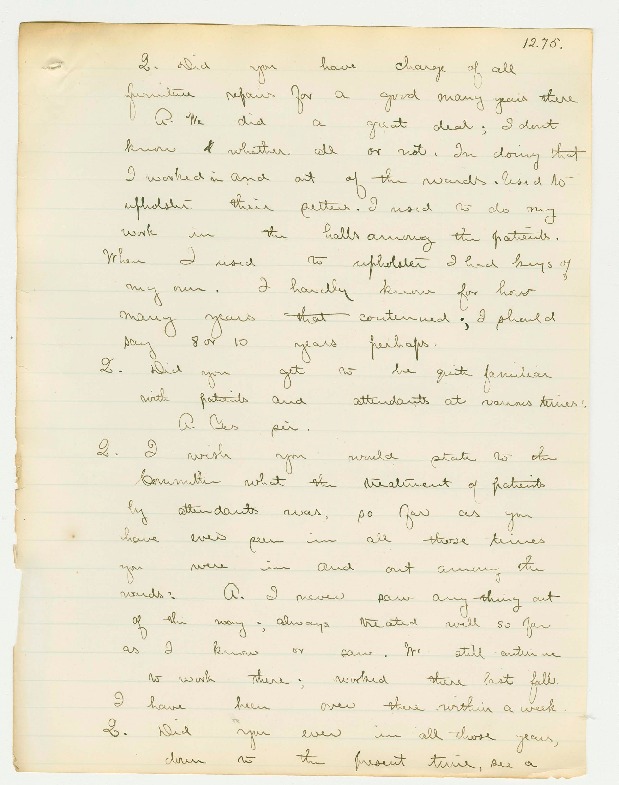 1275.
Q. Did you have charge of all
furniture repairs for a good many years there
A. We did a great deal; I dont
know whether all or not. In doing that
I worked in and out of the wards. Used to
upholster their settees. I used to do my
work in the halls among the patients.
When I used to upholster I had keys of
my own. I hardly know for how
many years that continued; I should
say 8 or 10 years perhaps.
Q. Did you get to be quite familiar
with patients and attendants at various times?
A. Yes sir.
Q. I wish you would state to the
Committee what the treatment of patients
by attendants was, so far as you
have ever seen in all those times
you were in and out among the
wards? A. I never saw any thing out
of the way; always treated well so far
as I know or saw. We still continue
to work there; worked there last fall.
I have been over there within a week.
Q. Did you ever in all those years,
down to the present time, see a